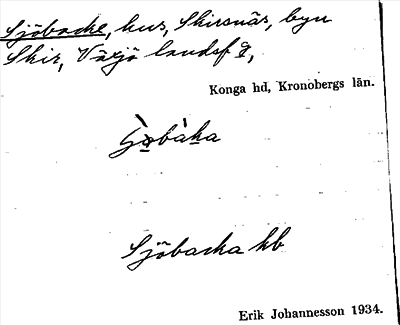 Sjöbacke, hus, Skirsnäs, byn
Skir, Växjö landsf g,
Konga hd, Kronobergs län.
Sjöbacka hb
Erik Johannesson 1934.